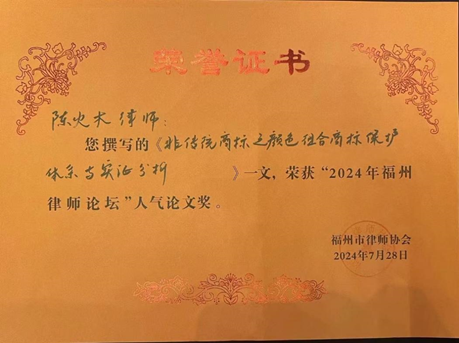 荣誉证书
陈火木律师：
您撰写的《非传统商标之颜色组合商标保护
体系与实证分析》一文，荣获“2024年福州
律师论坛”人气论文奖。
福州市律师协会
2024年7月28日